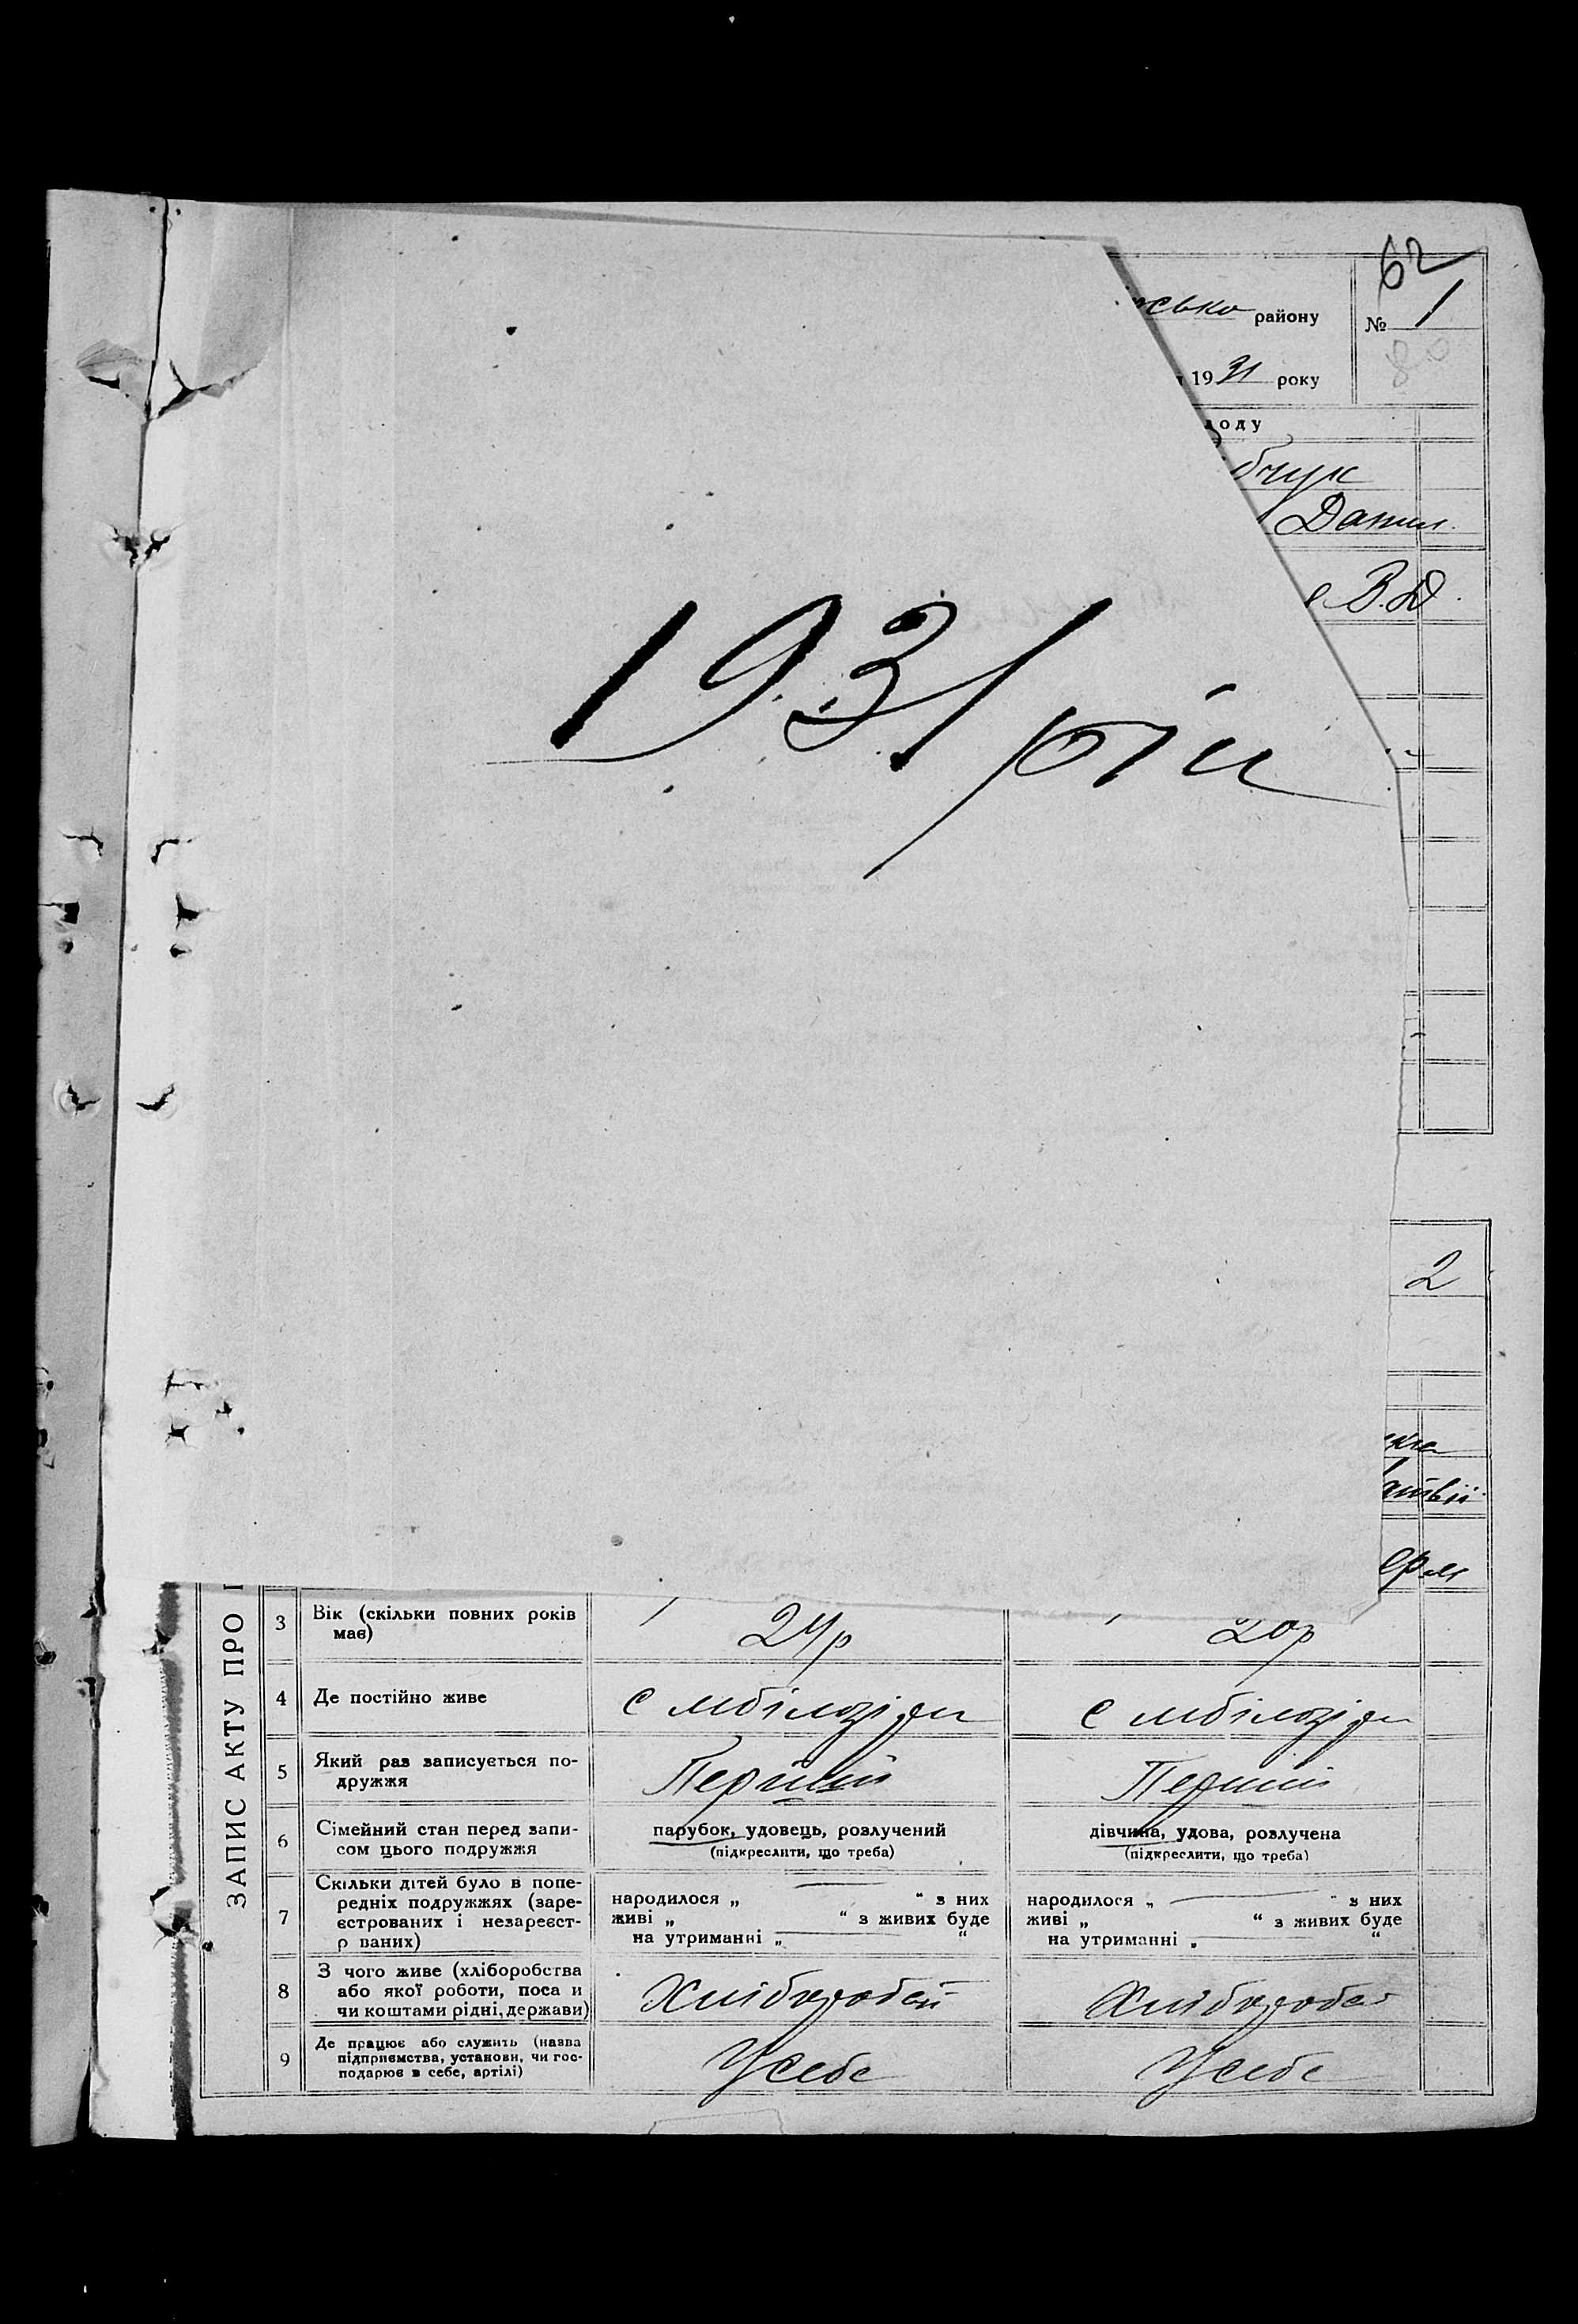 62
району № 1
80
1931 року
Данил.
В.Д.
1931 рік
2
ЗАПИС АКТУ ПРО
3 Вік (скільки повних років має) 24р 20р
4 Де постійно живе с
5 Який раз записується подружжя Перший Перший
6 Сімейний стан перед записом цього подружжя парубок, удовець, розлучений (підкреслити, що треба) дівчина, удова, розлучена (підкреслити, що треба)
7 Скільки дітей було в попередніх подружжях (зареєстрованих і незареєстр ваних) народилося „ “ з них живі „ “ з живих буде на утриманні „ “ народилося „ “ з них живі „ “ з живих буде на утриманні „ “
8 З чого живе (хліборобства або якої роботи, поса и чи коштами рідні, держави)
9 Де працює або служить (назва підприємства, установи, чи господарює в себе, артілі) У себе У себе